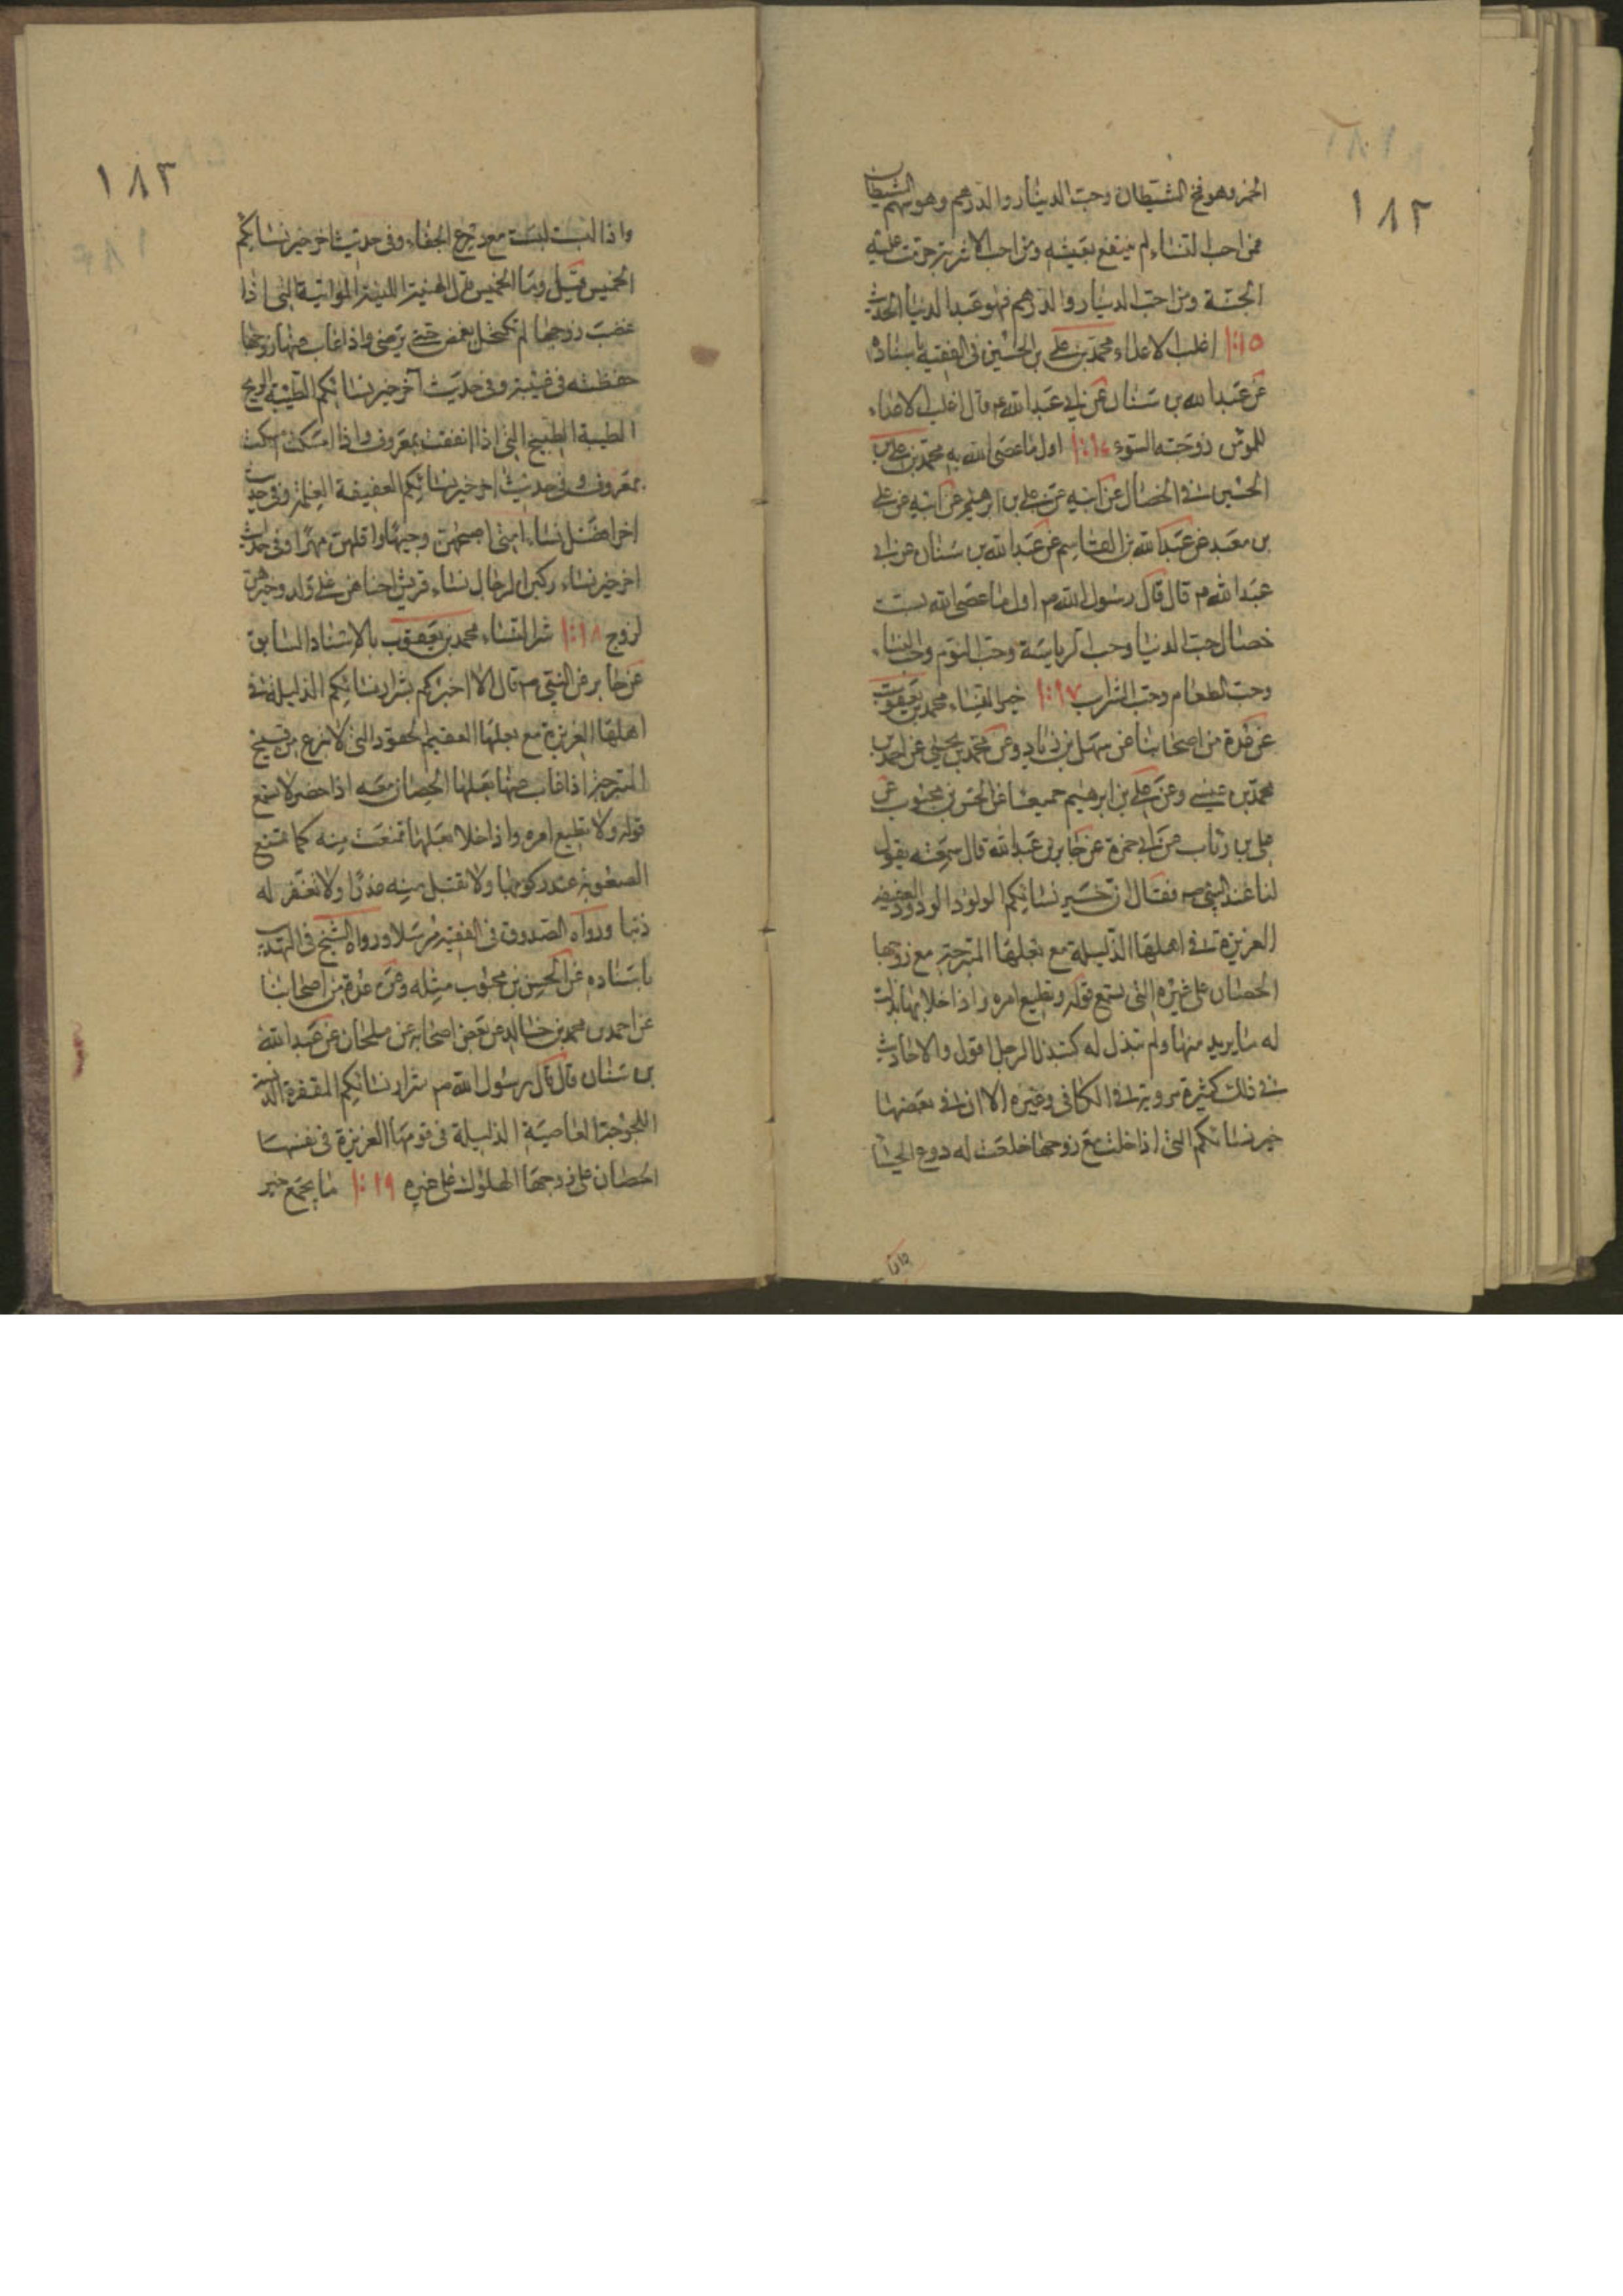 ١٨٢
الخمر وهو فخ الشيطان وحب الدينار والدرهم وهو سهم الشيطان
فمن احب النساء لم ينتفع بعيشه ومن احب الاشربة حرمت عليه
الجنة ومن احب الدينار والدرهم فهو عبد الدنيا الحديث
١٠١٥ اغلب الاعداء محمد بن علي بن الحسين في الفقيه باسناده
عن عبد الله بن سنان عن ابي عبد الله ع قال اغلب الاعداء
للمؤمن زوجته السوء ١٠١٦ اول ما عصى الله به محمد بن علي بن
الحسين في الخصال عن ابيه عن علي بن ابرهيم عن ابيه عن علي
بن معبد عن عبد الله بن القاسم عن عبد الله بن سنان عن ابي
عبد الله م قال قال رسول الله ص اول ما عصى الله بست
خصال حب الدنيا وحب الرياسة وحب النوم وحب النساء
وحب الطعام وحب الشراب ١٠١٧ خير النساء محمد بن يعقوب
عن عدة من اصحابنا عن سهل بن زياد وعن محمد بن يحيى عن احمد بن
محمد بن عيسى وعن علي بن ابرهيم جميعا عن الحسن بن محبوب عن
علي بن رئاب عن ابي حمزة عن جابر بن عبد الله قال سمعته يقول
كنا عند النبي ص فقال ان خير نسائكم الولود الودود العفيفة
العزيزة في اهلها الذليلة مع بعلها المتبرجة مع زوجها
الحصان على غيره التي تسمع قوله وتطيع امره واذا خلا بها بذلت
له ما يريد منها ولم تبذل له كتبذل الرجل اقول والاحاديث
في ذلك كثيرة مروية في الكافي وغيره الا ان في بعضها
خير نسائكم التي اذا خلت مع زوجها خلعت له درع الحياء
واذا
١٨٣
واذا لبست لبست معه درع الحياء وفي حديث اخر خير نسائكم
الخمس قيل وما الخمس قال الهينة اللينة المواتية التي اذا
غضب زوجها لم تكتحل بغمض حتى يرضى واذا غاب عنها زوجها
حفظته في غيبته وفي حديث آخر خير نسائكم الطيبة الريح
الطيبة الطبيخ التي اذا انفقت بمعروف واذا امسكت امسكت
بمعروف وفي حديث اخر خير نسائكم العفيفة الغلمة وفي حديث
اخر افضل نساء امتي اصبحهن وجها واقلهن مهرا وفي حديث
اخر خير نساء ركبن الرحال نساء قريش احناهن على ولد وخيرهن
لزوج ١٠١٨ شر النساء محمد بن يعقوب بالاسناد السابق
عن جابر عن النبي ص قال الا اخبركم بشرار نسائكم الذليلة في
اهلها العزيزة مع بعلها العقيم الحقود التي لا تورع من قبيح
المتبرجة اذا غاب عنها بعلها الحصان معه اذا حضر لا تسمع
قوله ولا تطيع امره واذا خلا بعلها تمنعت منه كما تمنع
الصعوبة عند ركوبها ولا تقبل منه عذرا ولا تغفر له
ذنبا ورواه الصدوق في الفقيه مرسلا ورواه الشيخ في التهذيب
باسناده عن الحسن بن محبوب مثله وعن عدة من اصحابنا
عن احمد بن محمد بن خالد عن بعض اصحابه عن ملحان عن عبد الله
بن سنان قال قال رسول الله ص شرار نسائكم المقفرة الدنسة
اللجوجة العاصية الذليلة في قومها العزيزة في نفسها
الحصان على زوجها الهلوك على غيره ١٠١٩ ما يجمع خير